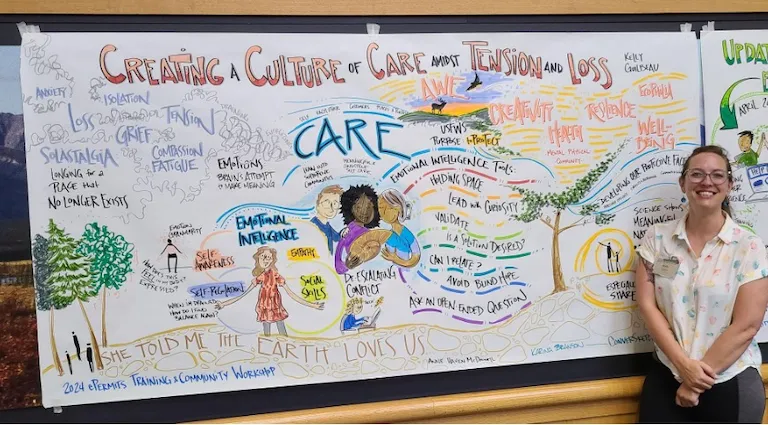 CREATING A CULTURE OF CARE AMIDST TENSION AND LOSS
KELLY
UPDAT
ANXIETY
ISOLATION
LOSS
TENSION
GRIEF
SOLASTALGIA
COMPASSION
FATIGUE
LONGING FOR A
PLACE THAT
NO LONGER EXISTS
EMOTIONS
BRAIN'S ATTEMPT
TO MAKE MEANING
CARE
AWE
USFWS
PURPOSE TO PROTECT
CREATIVITY
HEALTH
MENTAL PHYSICAL
RESILIENCE
WELL-
BEING
APRIL
EMOTIONAL INTELLIGENCE TOOLS:
HOLDING SPACE
LEAD WITH CURIOSITY
VALIDATE
IS A SOLUTION DESIRED?
CAN I RELATE?
AVOID BLIND HOPE
ASK AN OPEN ENDED QUESTION
DEVELOPING OUR PROTECTIVE FAC
SCIENCE
MEANINGFUL
EMOTIONAL
INTELLIGENCE
SELF
AWARENESS
EMPATHY
SELF REGULATION
SOCIAL
SKILLS
DE ESCALATING
CONFLICT
HOW DO I FIND
BALANCE AGAIN?
ESPECIALLY
SHARED
SHE TOLD ME THE EARTH LOVES US
ANNE HAVEN MCDONNELL
2024 EPERMITS TRAINING & COMMUNITY WORKSHOP
KARINA BRANSON